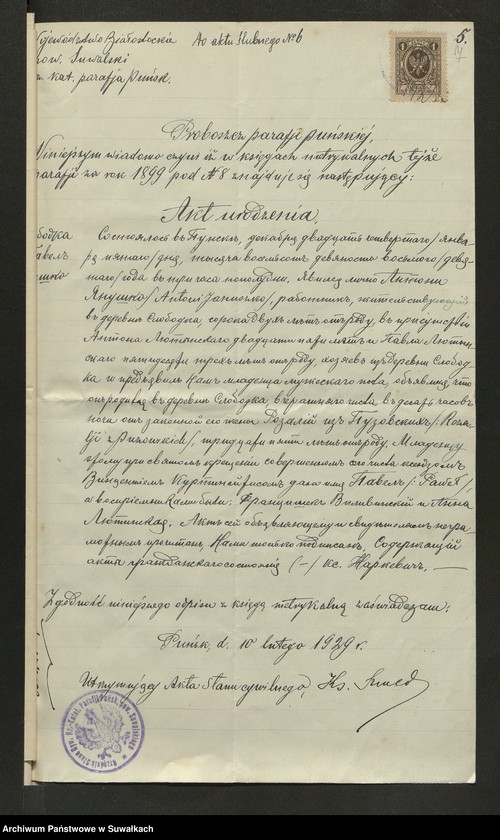 Województwo Białostockie Do aktu ślubnego № 6
pow. Suwalski
kat. parafja Puńsk.
5.
1
Proboszcz parafji puńskiej,
Niniejszym wiadomo czyni iż w księgach metrykalnych tejże
parafji za rok 1899 pod № 8 znajduje się następujący:
Akt urodzenia.
Слободка
Павелъ
Янушко
Состоялось въ Пунскѣ, декабря двадцать четвертаго / янва-
ря пятаго / дня, тысяча восемьсотъ девяносто восьмого / девя-
таго / года въ три часа пополудни. Явился лично Антони
Янушко / Antoni Januszko /, работникъ, жительствующій
въ деревнѣ Слободка, сорока двухъ лѣтъ отъ роду, въ присутствіи
Антона Лютынскаго двадцати пяти лѣтъ и Павла Лютын-
скаго пятидесяти трехъ лѣтъ отъ роду, хозяевъ изъ деревни Слобод-
ка и предъявилъ Намъ младенца мужескаго пола, объявляя, что
онъ родился въ деревнѣ Слободка, вчерашняго числа въ десять часовъ
ночи отъ законной его жены Розаліи изъ
тридцати пяти лѣтъ отъ роду. Младенцу
этому при святомъ крещеніи совершенномъ сего числа ксендзомъ
Винцентіемъ дано имя Павелъ /: Paweł /,
а воспріемниками были: Францишекъ и Анна
Лютынская. Актъ сей объявляющему и свидѣтелямъ негра-
мотнымъ прочитанъ, Нами только подписанъ. Содержащій
акты гражданскаго состоянія (–) кс. Наркевичъ. —
Zgodność niniejszego odpisu z księgą metrykalną zaświadczam:
Puńsk, d. 10 lutego 1929 r.
Utrzymujący Akta Stanu cywilnego, Ks.
Archiwum Państwowe w Suwałkach